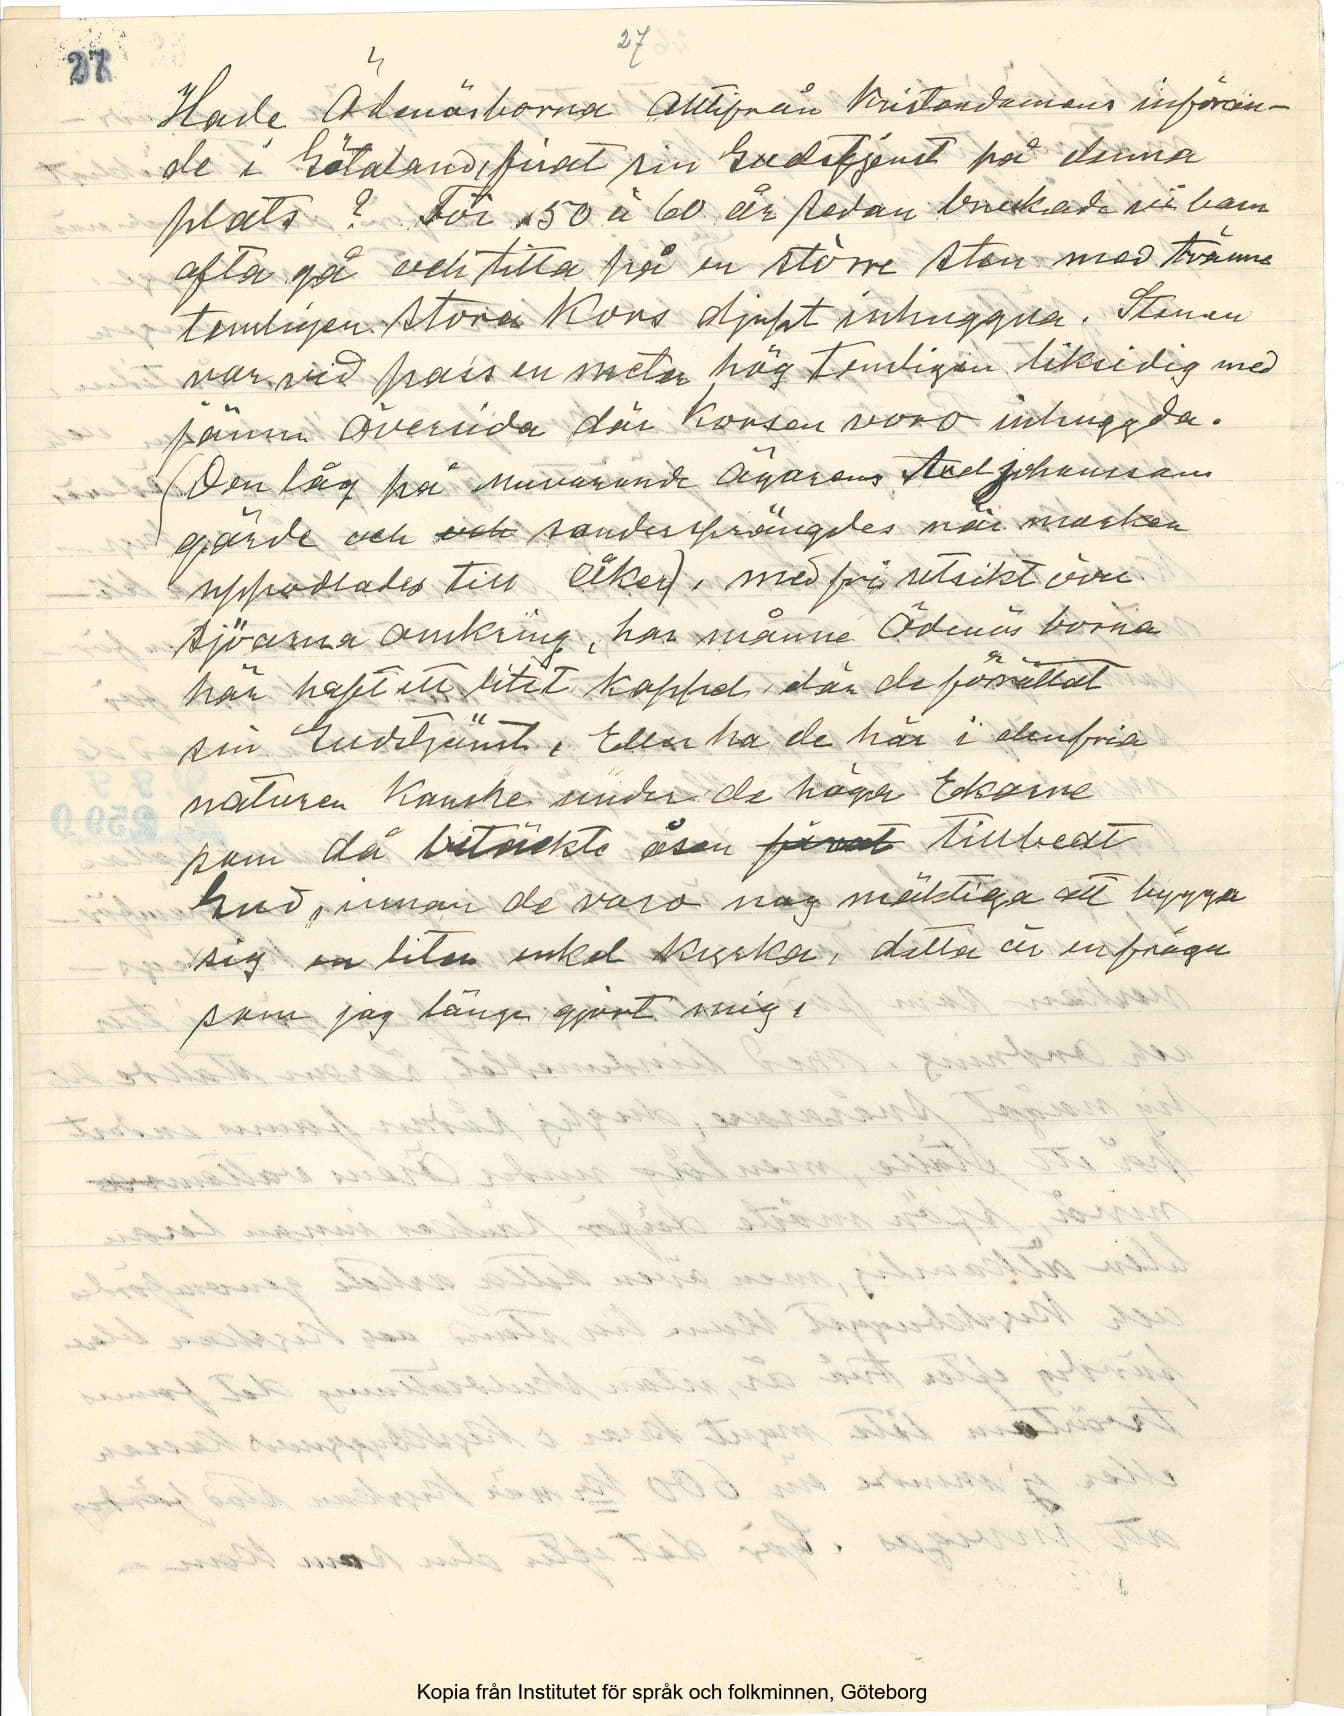 27
27
Hade Ödenäsborna alltifrån Kristendomens införan-
de i Götaland, firat sin Gudstjenst på denna
plats? För 50 à 60 år sedan brukade vi barn
ofta gå och titta på en större sten med tvänne
temligen stora Kors djupt inhuggna. Stenen
var vid pass en meter hög temligen liksidig med
jämn översida där Korsen voro inhuggda.
(Den låg på nuvarande ägarens Axel Johanssons
gärde och och sondersprängdes när marken
uppodlades till åker), med fri utsikt över
sjöarna omkring, har månne Ödenäs borna
här haft ett litet kappel, där de förrättat
sin Gudstjänst, Eller ha de här i den fria
naturen Kanske under de höga Ekarne
som då betäckte åsen firat tillbedt
Gud, innan de voro nog mäktiga att bygga
sig en liten enkel Kyrka, detta är en fråga
som jag länge gjort mig,
Kopia från Institutet för språk och folkminnen, Göteborg